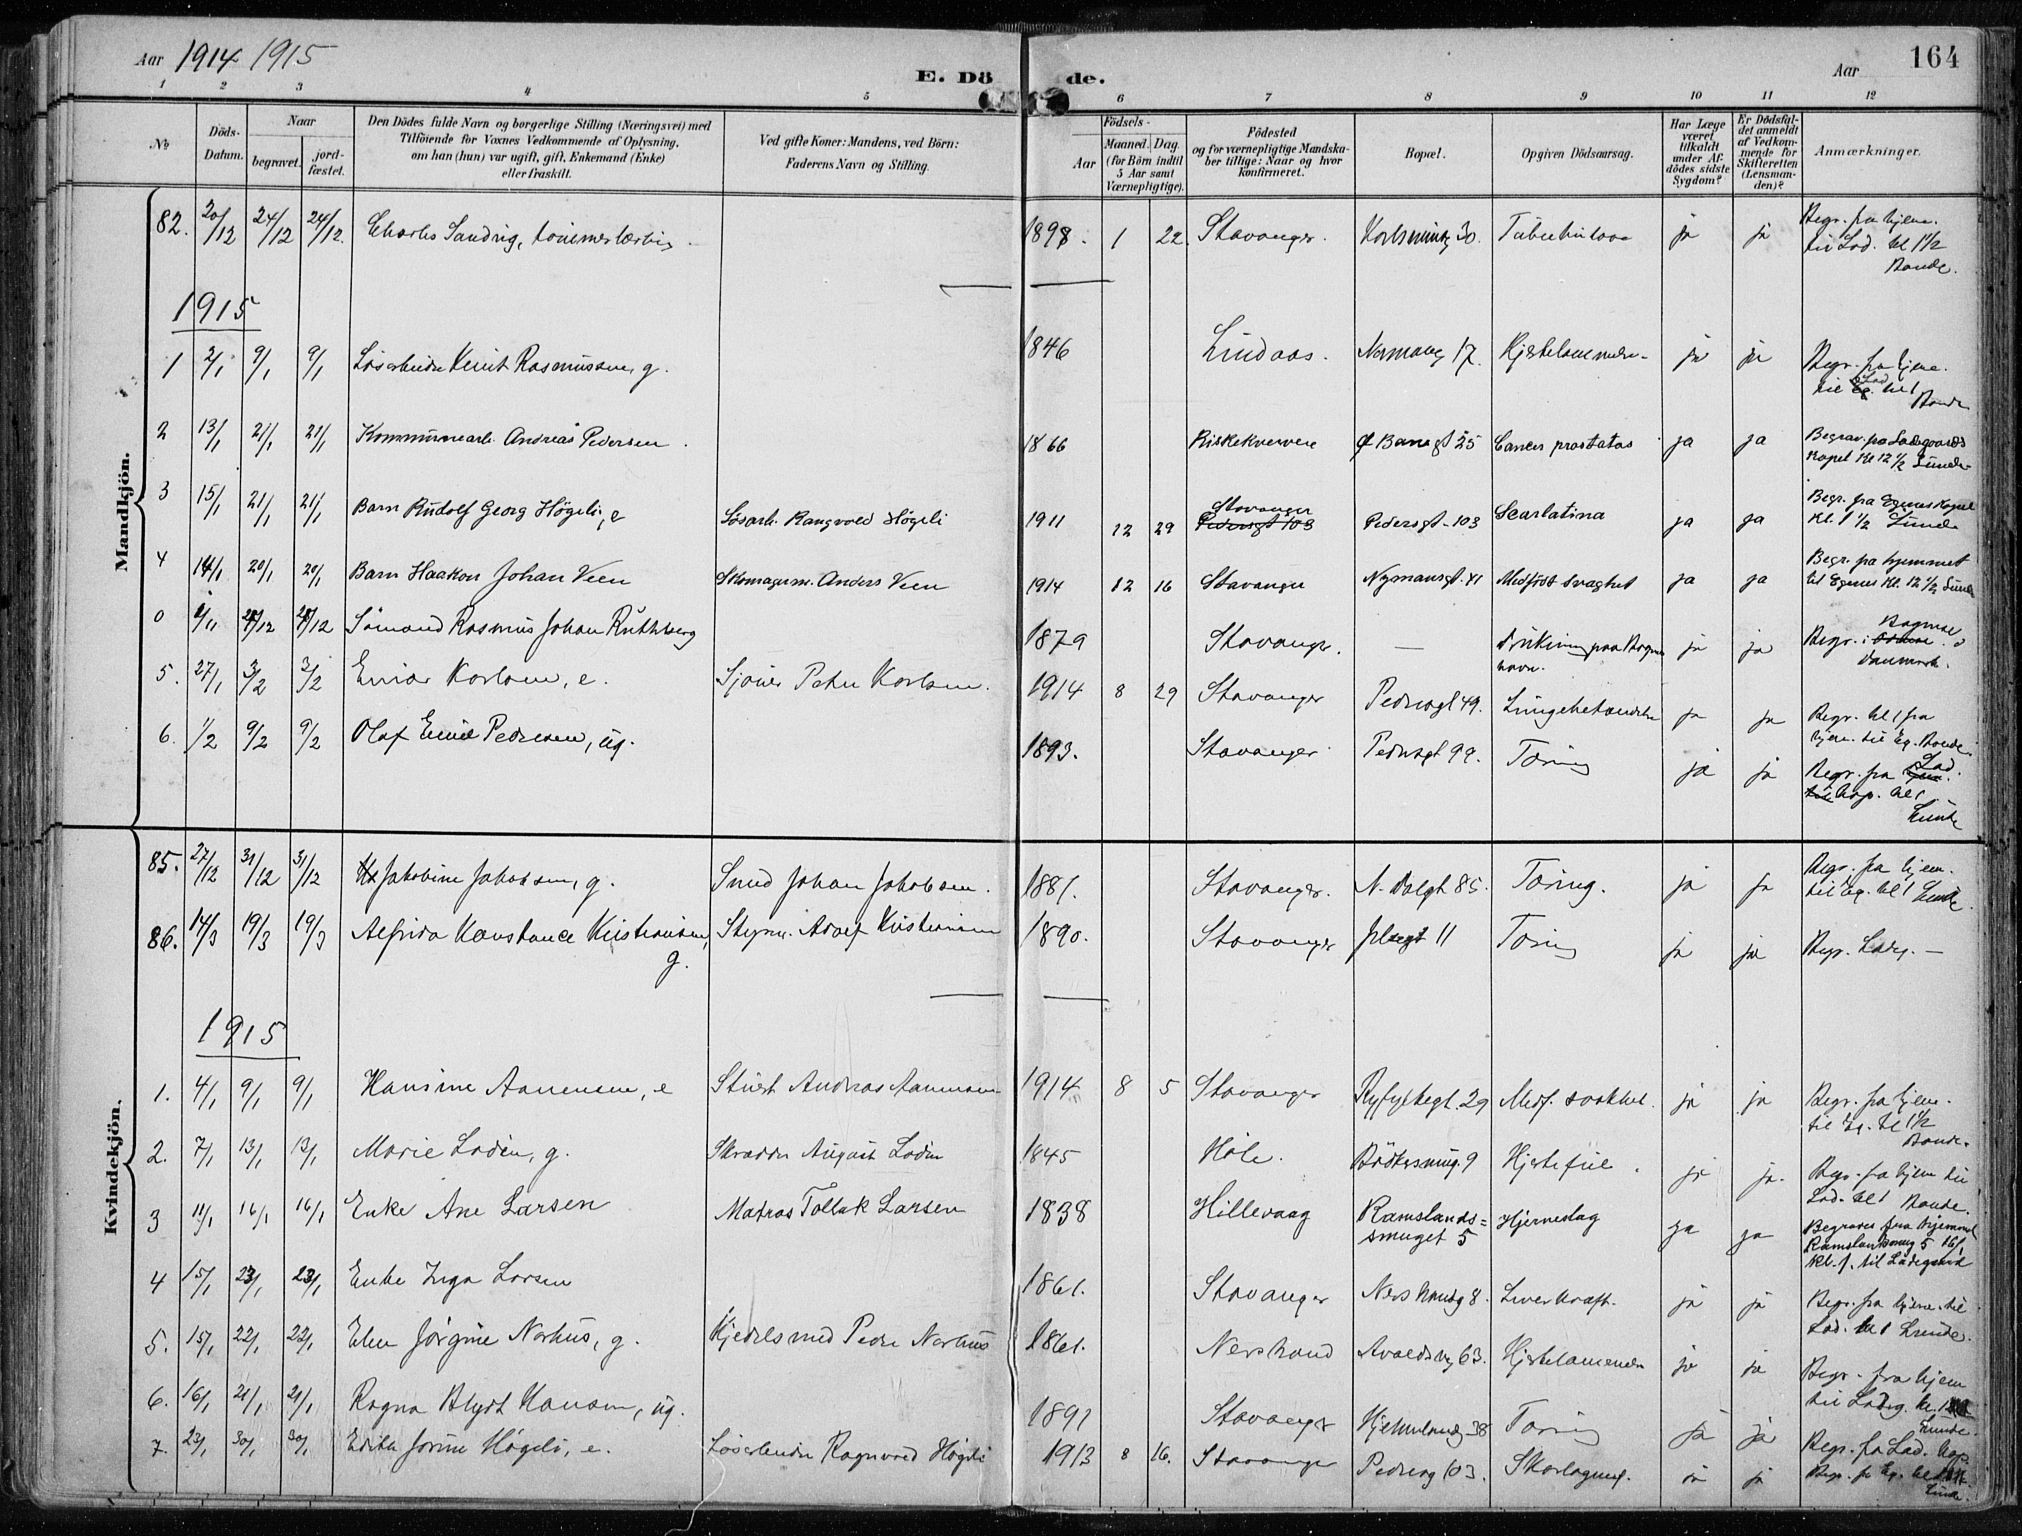 Aar 1914 1915
E. Döde.
Aar
164
1 2 3 4 5 6 7 8 9 10 11 12
No
Döds-Datum.
Naar
begravet.
jord-fæstet.
Den Dödes fulde Navn og borgerlige Stilling (Næringsvei) med
Tilföiende for Voxnes Vedkommende af Oplysning,
om han (hun) var ugift, gift, Enkemand (Enke)
eller fraskilt.
Ved gifte Koner: Mandens, ved Börn:
Faderens Navn og Stilling.
Födsels-
Aar
Maaned. Dag.
(for Börn indtil
5 Aar samt
Værnepligtige).
Födested
og for værnepligtige Mandska-
ber tillige: Naar og hvor
konfirmeret.
Bopæl.
Opgiven Dödsaarsag.
Har Læge
været
tilkaldt
under Af-
dödes sidste
Sygdom?
Er Dödsfal-
det anmeldt
af Vedkom-
mende for
Skifteretten
(Lensman-
den)?
Anmærkninger.
Mandkjön.
82. 20/12 24/12 24/12. Charles Sandvig, 1898. 1 22. Stavanger. 30. ja ja Begr. fra hjem. til Lad. kl 1 1/2
1915
1 2/1 9/1 9/1 Løsarbeider Knut Rasmussen, g. 1846 Lindaas. 17. Hjertelammelse ja ja Begr. fra hjem. til Lad. kl 1
2 13/1 21/1 21/1 Kommunearb. Andreas Pedersen. 1866 Banegt 25 Cancer prostatas ja ja Begrav. fra Ladegaards Kapel Kl 12 1/2 Lunde
3 15/1 21/1 21/1 Barn Rudolf Georg Högeli, e Løsarb. Rangvald Högeli 1911 12 29 Stavanger Pedersgt 103 Pedersgt - 103 Scarlatina ja ja Begr. fra Egenes Kapel Kl. 1 1/2 Lunde
4 14/1 20/1 20/1 Barn Haakon Johan Veen Skomagerm. Anders Veen 1914 12 16 Stavanger Nymansgt. 41 Medfödt svaghet ja ja Begr. fra hjemmet til Egenes Kl. 12 1/2 Lunde
0 Sömand Rasmus Johan Ruthberg 1879 Stavanger. — ja ja Begr. i Danmark.
5. 27/1 3/2 3/2 Einar Karlsen, e. Sjöm. Peter Karlsen. 1914 8 29 Stavanger Pedersgt 49. Lungebetændelse ja ja Begr. kl 1 fra hjem. til Eg.
6. 1/2 9/2 9/2 Olaf Emil Pedersen, ug. 1893. Stavanger Pedersgt 99. Tæring ja ja Begr. fra Lad. kap. kl 1 Lunde
Kvindekjön.
85. 27/12 31/12 31/12 Jakobine Jakobsen, g. Smed Johan Jakobsen. 1881. Stavanger. N. Dalgt 85. Tæring. ja ja Begr. fra hjem. til Eg. kl 1 Lunde.
86. 14/3 19/3 19/3 Alfrida Konstance Kristiansen, g. Styrm. Adolf Kristiansen 1890. Stavanger 11 Tæring ja ja Begr. Ladeg. —
1915
1. 4/1 9/1 9/1 Hansine Aanensen, e Andreas Aanensen 1914 8 5 Stavanger Ryfylkegt. 29 Medf. svakhet. ja ja Begr. fra hjem. til Eg. kl 1 1/2
2. 7/1 13/1 13/1 Marie Ladin, g. Skrædder August Ladin 1845 Höle. Bödkersmug. 9 Hjertefeil. ja ja. Begr. fra hjem til Lad. kl 1
3 11/1 16/1 16/1 Enke Ane Larsen Matros Tollak Larsen 1838 Hillevaag Ramslands=smuget 5 Hjerneslag ja ja Begraves fra hjemmet Ramslandsmug 5 16/1 kl. 1. til Ladegaard
4 15/1 23/1 23/1 Enke Inga Larsen 1861. Stavanger 8. Leverkræft. ja ja Begr. fra hjem. til Lad. kl 1 Lunde.
5. 15/1 22/1 22/1 Elen Jörgine Norhus, g. Kjedelsmed Peder Norhus 1861. Nerstrand 63. Hjertelammelse ja ja Begr. fra hjem
6. 16/1 21/1 21/1 Ragna Blydt Hansen, ug. 1891 Stavanger 38 Tæring ja ja til Ladeg. kl. Lunde.
7. 23/1 30/1 30/1 Edith Jorine Högeli, e. Løsarbeider Ragnvald Högeli 1913 8 16. Stavanger Pedersg 103. Skarlagensf. ja ja Begr. fra Eg. kl Lunde.